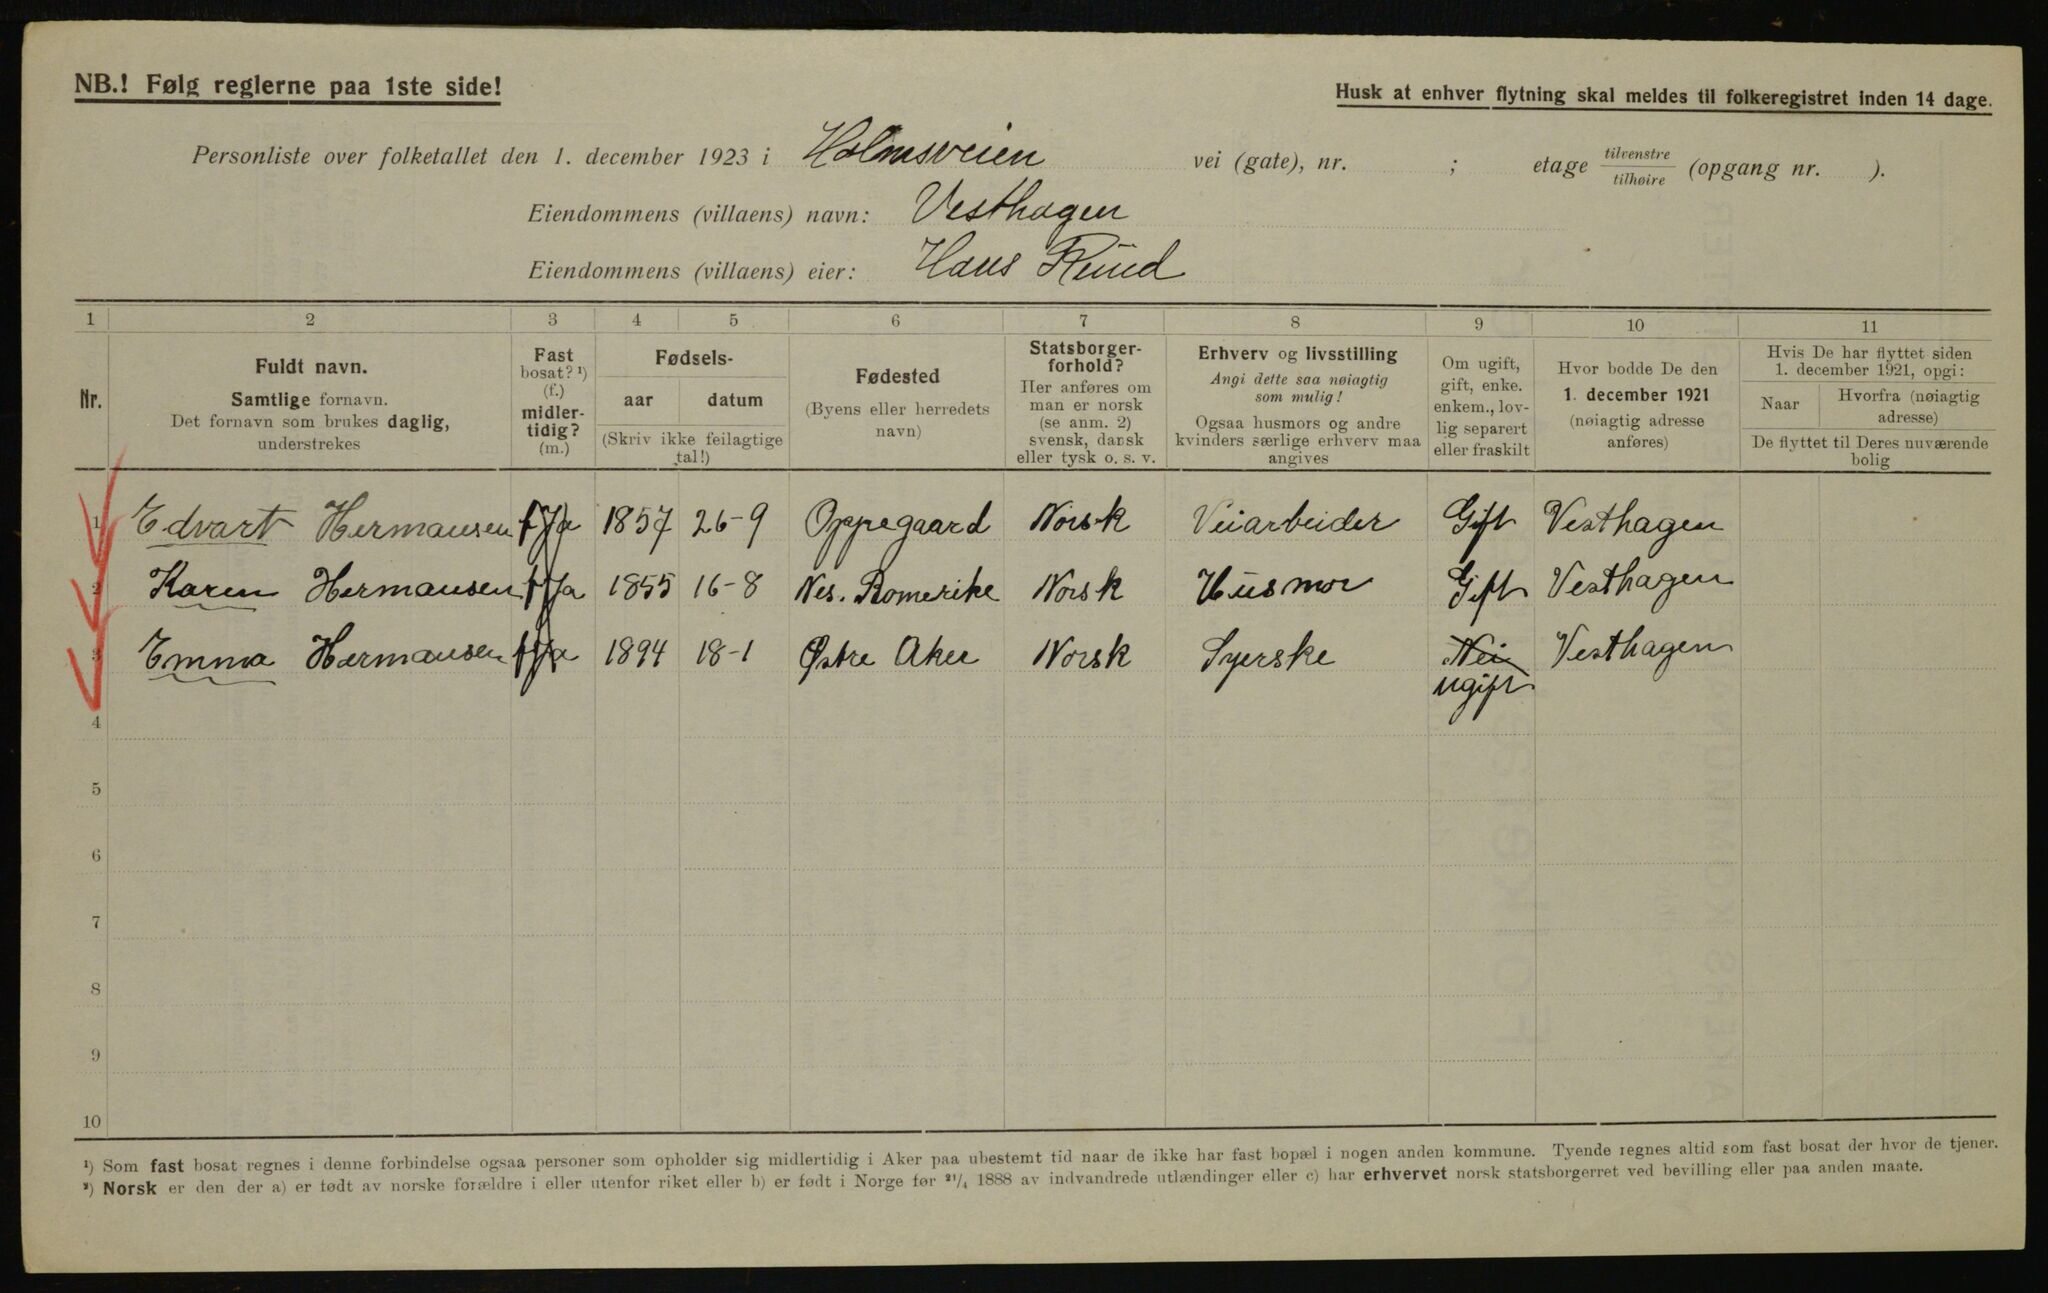 NB.! Følg reglerne paa 1ste side!
Husk at enhver flytning skal meldes til folkeregistret inden 14 dage.
Personliste over folketallet den 1. december 1923 i Holmsveien vei (gate), nr. ; etage tilvenstre tilhøire (opgang nr. ).
Eiendommens (villaens) navn: Vesthagen
Eiendommens (villaens) eier: Hans Ruud
1 2 3 4 5 6 7 8 9 10 11
Nr.
Fuldt navn.
Samtlige fornavn.
Det fornavn som brukes daglig,
understrekes
Fast
bosat? ¹)
(f.)
midler-
tidig?
(m.)
Fødsels-
aar datum
(Skriv ikke feilagtige
tal!)
Fødested
(Byens eller herredets
navn)
Statsborger-
forhold?
Her anføres om
man er norsk
(se anm. 2)
svensk, dansk
eller tysk o. s. v.
Erhverv og livsstilling
Angi dette saa nøiagtig
som mulig!
Ogsaa husmors og andre
kvinders særlige erhverv maa
angives
Om ugift,
gift, enke.
enkem., lov-
lig separert
eller fraskilt
Hvor bodde De den
1. december 1921
(nøiagtig adresse
anføres)
Hvis De har flyttet siden
1. december 1921, opgi:
Naar
Hvorfra (nøiagtig
adresse)
De flyttet til Deres nuværende
bolig
1 Edvart Hermansen f Ja 1857 26-9 Oppegaard Norsk Veiarbeider Gift Vesthagen
2 Karen Hermansen f Ja 1855 16-8 Nes. Romerike Norsk Husmor Gift Vesthagen
3 Emma Hermansen f Ja 1894 18-1 Østre Aker Norsk Syerske Nei Vesthagen
ugift
4
5
6
7
8
9
10
¹) Som fast bosat regnes i denne forbindelse ogsaa personer som opholder sig midlertidig i Aker paa ubestemt tid naar de ikke har fast bopæl i nogen anden kommune. Tyende regnes altid som fast bosat der hvor de tjener.
²) Norsk er den der a) er født av norske forældre i eller utenfor riket eller b) er født i Norge før 21/4 1888 av indvandrede utlændinger eller c) har erhvervet norsk statsborgerret ved bevilling eller paa anden maate.